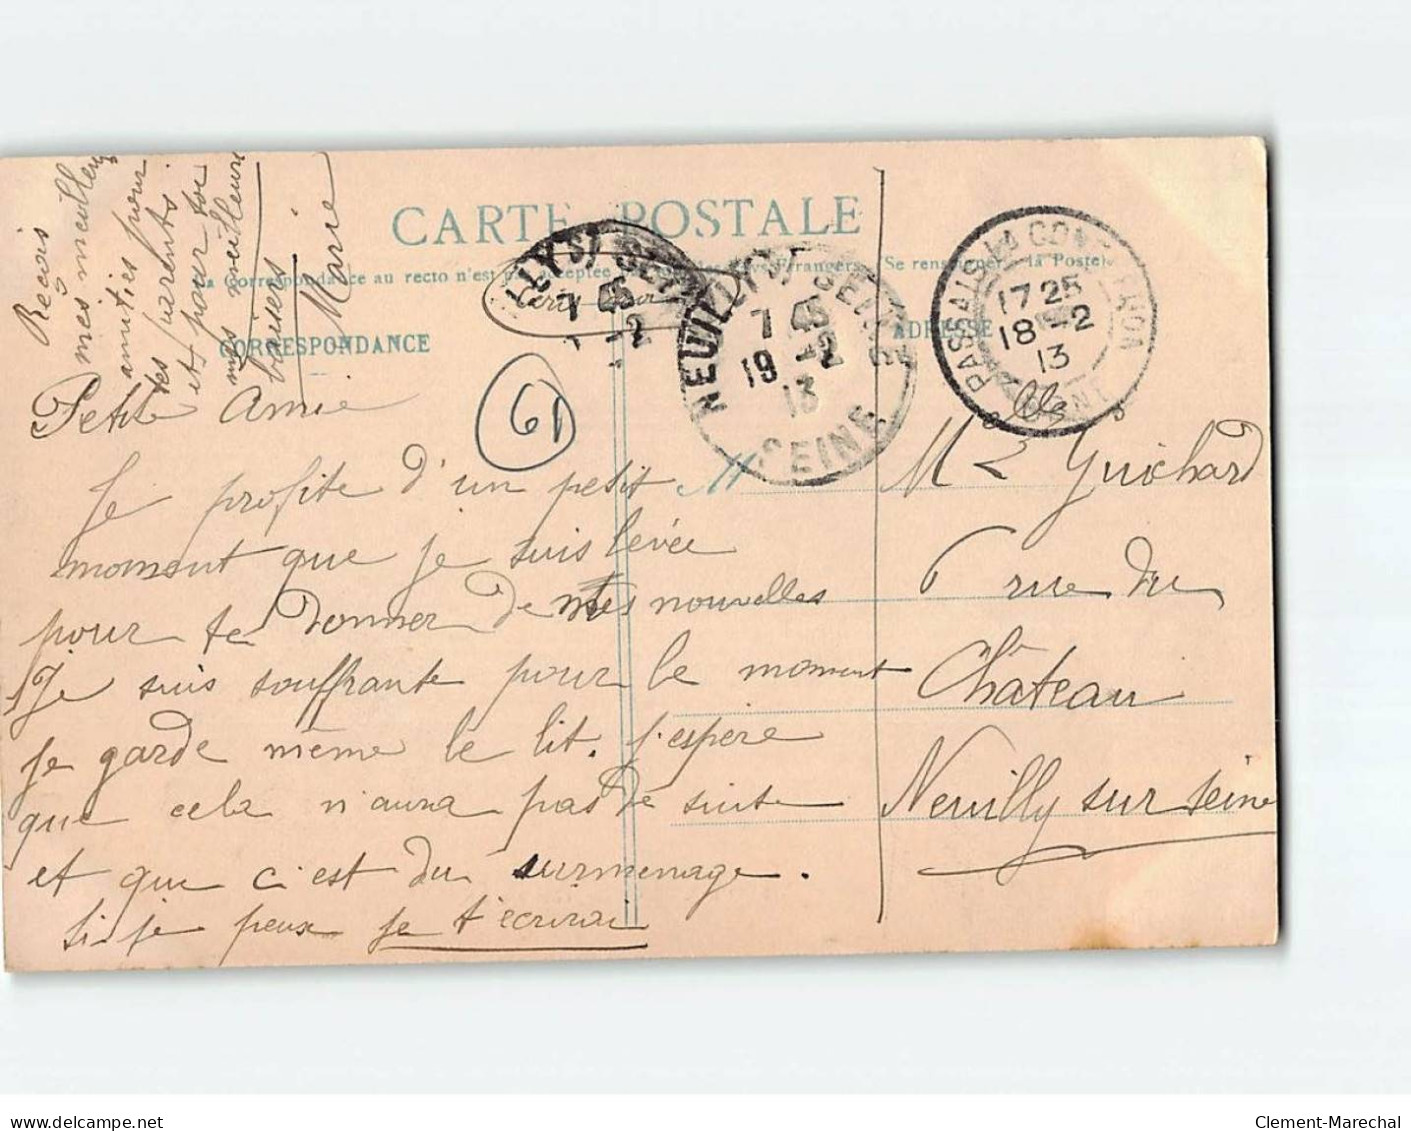 CARTE POSTALE
La Correspondance au recto n'est pas acceptée
Se renseigner à la Poste
CORRESPONDANCE
ADRESSE
Petite Amie
Je profite d'un petit
moment que je suis levée
pour te donner de mes nouvelles
Je suis souffrante pour le moment
je garde même le lit. j'espère
que cela n'aura pas de suite
et que c'est du surmenage.
si je peux je t'écrirai
Reçois
mes meilleurs
amitiés pour
tes parents
et pour toi
mes meilleurs
baisers
Marie
61
M
NEUILLY S/ SEINE
7 45
19 -2
13
SEINE
PASSAIS LA CONCEPTION
17 25
18 -2
13
Mlle Guichard
6 rue du
Château
Neuilly sur Seine
delcampe.net
Clement-Marechal